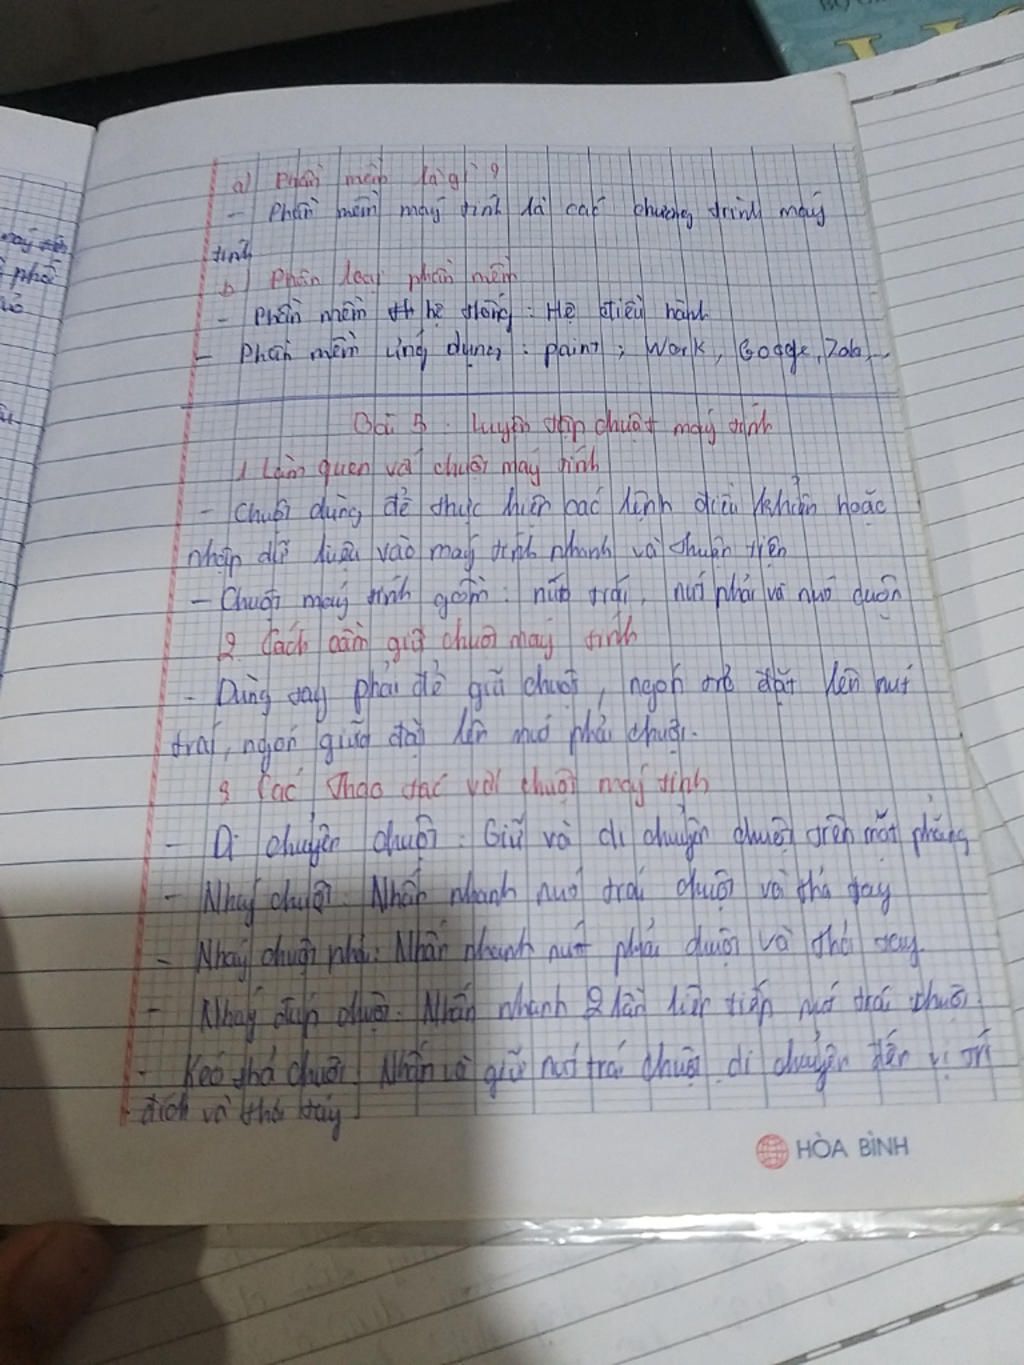 a) Phần mềm là gì?
- Phần mềm máy tính là các chương trình máy
tính
b) Phân loại phần mềm
- Phần mềm hệ thống: Hệ điều hành
- Phần mềm ứng dụng: paint; Work, Goggle, Zalo,...
Bài 5: Luyện tập chuột máy tính
1 Làm quen với chuột máy tính
- Chuột dùng để thực hiện các lệnh điều khiển hoặc
nhập dữ liệu vào máy tính nhanh và thuận tiện
- Chuột máy tính gồm: nút trái, nút phải và nút cuộn
2 Cách cầm giữ chuột máy tính
- Dùng tay phải để giữ chuột, ngón trỏ đặt lên nút
trái, ngón giữa đặt lên nút phải chuột.
3 Các thao tác với chuột máy tính
- Di chuyển chuột: Giữ và di chuyển chuột trên mặt phẳng
- Nháy chuột: Nhấn nhanh nút trái chuột và thả tay
- Nháy chuột phải: Nhấn nhanh nút phải chuột và thả tay.
- Nháy đúp chuột: Nhấn nhanh 2 lần liên tiếp nút trái chuột
- Kéo thả chuột: Nhấn và giữ nút trái chuột, di chuyển đến vị trí
đích và thả tay
HÒA BÌNH